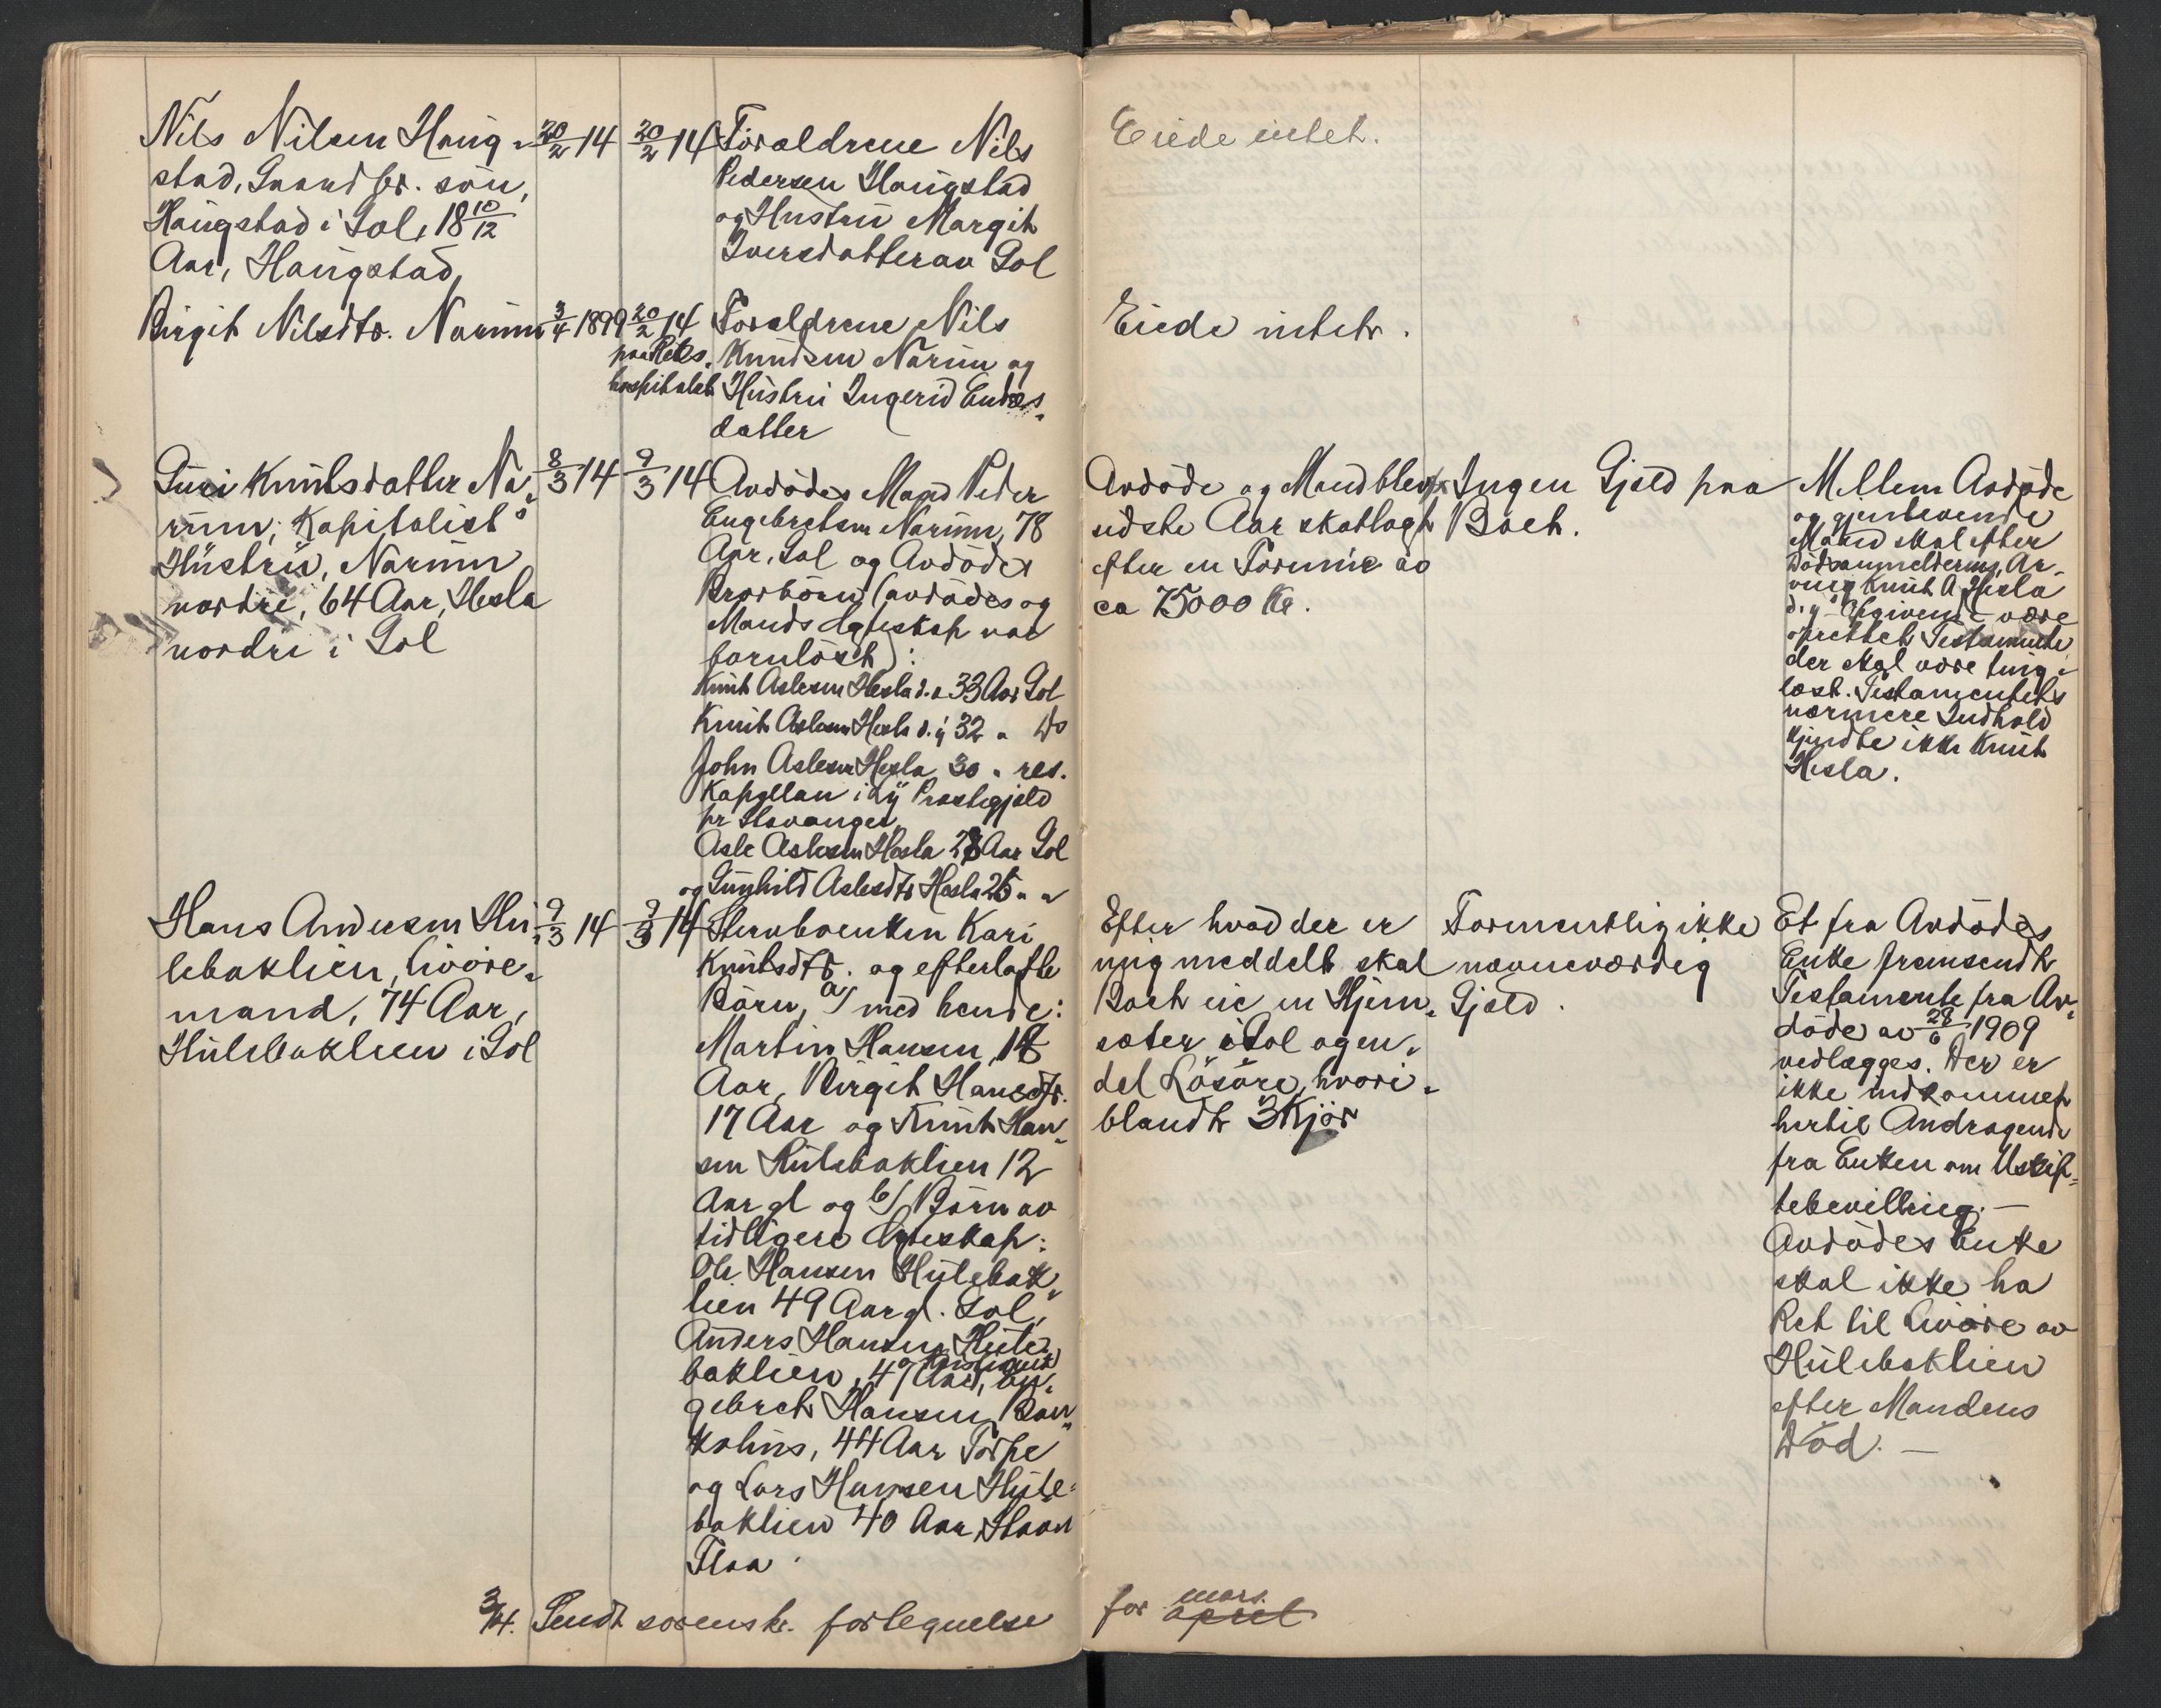 Nils Nilsen Haug-
stad, Gaardbr. sön,
Haugstad i Gol, 18 10/12
Aar, Haugstad,
20/2 14
20/2 14
Forældrene Nils
Pedersen Haugstad
og Hustru Margit
Iversdatter av Gol
Eiede intet.
Birgit Nilsdtr. Narum
3/4 1899
20/2 14
paa Riks-
hospitalet
Forældrene Nils
Knudsen Narum og
Hustru Ingerid Endres-
datter
Eiede intet.
Guri Knutsdatter Na-
rum, Kapitalist's
Hustru, Narum
nordre, 64 Aar, Hesla
nordre i Gol
8/3 14
9/3 14
Avdödes Mand Peder
Engebretsen Narum, 78
Aar, Gol og Avdödes
Brorbörn (avdödes og
Mands Egteskap var
barnlöst):
Knut Aslesen Hesla d.e. 33 Aar Gol
Knut Aslesen Hesla d.y. 32 " Do
John Aslesen Hesla 30 " res.
Kapellan i Ly Prestegjeld
pr Stavanger,
Asle Aslesen Hesla 28 Aar Gol
og Gunhild Aslesdtr Hesla 25 " "
Avdöde og Mand blev
sidste Aar skatlagt
efter en Formue av
ca 75000 Kr.
Ingen Gjeld paa
Boet.
Mellem Avdöde
og gjenlevende
Mand skal efter
Dödsanmelderens, Ar-
ving Knut A. Hesla
d.y.s Opgivende være
oprettet Testamente
der skal være ting-
læst. Testamentets
nærmere Indhold
kjendte ikke Knut
Hesla.
Hans Andersen Hu-
lebaklien, Livöre-
mand, 74 Aar,
Hulebaklien i Gol
9/3 14
9/3 14
Stervboenken Kari
Knutsdtr. og efterlatte
Börn, a/ med hende:
Martin Hansen, 18
Aar, Birgit Hansdtr.
17 Aar og Knut Han-
sen Hulebaklien 12
Aar gl og b/ Börn av
tidligere Egteskap:
Ole Hansen Hulebak-
lien 49 Aar gl. Gol,
Anders Hansen Hule-
baklien, 47 Aar, En-
gebret Hansen
44 Aar Torpe
og Lars Hansen Hule-
baklien 40 Aar,
Flaa.
Efter hvad der er
mig meddelt skal
Boet eie en Hjem-
sæter i Gol og en
del Lösöre, hvori-
blandt 3 Kjör
Formentlig ikke
nævneværdig
Gjeld.
Et fra Avdödes
Enke fremsendt
Testamente fra Av-
döde av 28/6 1909
vedlægges. Der er
ikke indkommet
hertil Andragende
fra Enken om Uskif-
tebevilling. —
Avdödes Enke
skal ikke ha
Ret til Livöre av
Hulebaklien
efter Mandens
Död. —
3/4. Sendt sorenskr. fortegnelse
for mars.
april